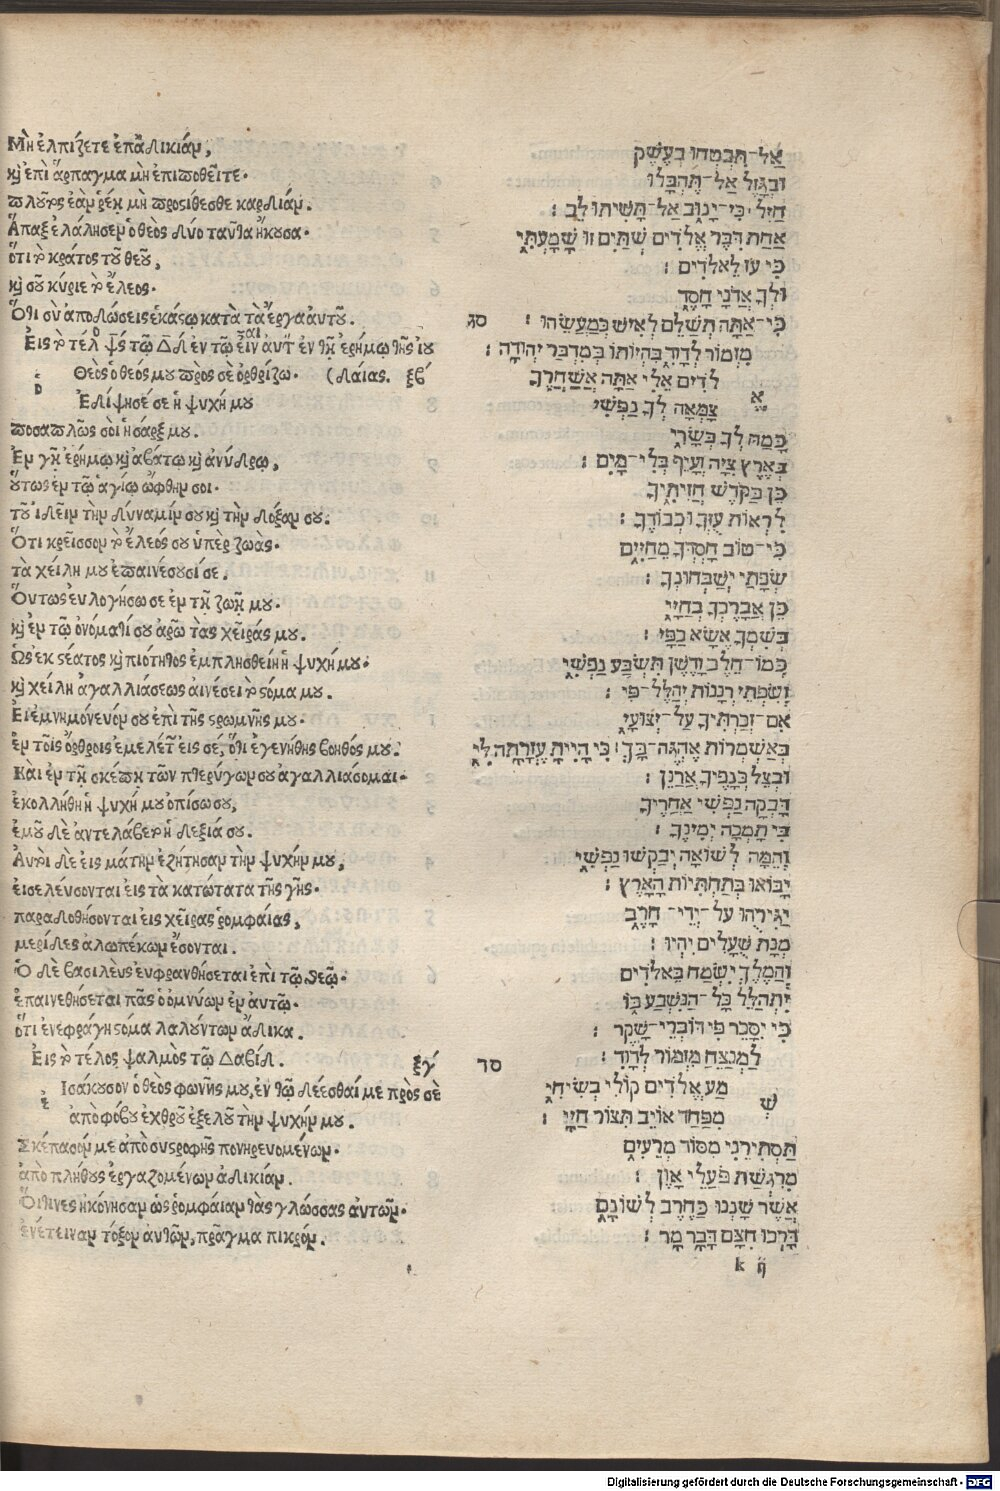 Μὴ ἐλπίζετε ἐπ' ἀδικίαν,
κὶ ἐπὶ ἅρπαγμα μὴ ἐπιποθεῖτε.
πλοῦτος ἐὰν ῥέῃ μὴ προστίθεσθε καρδίαν.
Ἅπαξ ἐλάλησεν ὁ θεὸς δύο ταῦτα ἤκουσα.
ὅτι τὸ κράτος τοῦ θεοῦ,
κὶ σοῦ κύριε τὸ ἔλεος.
Ὅτι σὺ ἀποδώσεις ἑκάστῳ κατὰ τὰ ἔργα αὐτοῦ.
Εἰς τὸ τέλος ψς τῷ Δδ ἐν τῷ εἶναι αὐτ ἐν τῇ ἐρήμῳ τῆς ἰου
Θεὸς ὁ θεός μου πρὸς σὲ ὀρθρίζω. (δαίας. ξβ
Ἐδίψησέ σε ἡ ψυχή μου
ποσαπλῶς σοὶ ἡ σάρξ μου.
Ἐν γῇ ἐρήμῳ κὶ ἀβάτῳ κὶ ἀνύδρῳ,
οὕτως ἐν τῷ ἁγίῳ ὤφθην σοι.
τοῦ ἰδεῖν τὴν δύναμίν σου κὶ τὴν δόξαν σου.
Ὅτι κρεῖσσον τὸ ἔλεός σου ὑπὲρ ζωὰς.
τὰ χείλη μου ἐπαινέσουσί σε.
Ὅυτως ἐυλογήσω σε ἐν τῇ ζωῇ μου.
κὶ ἐν τῷ ὀνόματί σου ἀρῶ τὰς χεῖράς μου.
Ὡς ἐκ στέατος κὶ πιότητος ἐμπλησθείη ἡ ψυχή μου.
κὶ χείλη ἀγαλλιάσεως αἰνέσει τὸ στόμα μου.
Εἰ ἐμνημόνευόν σου ἐπὶ τῆς στρωμνῆς μου.
ἐν τοῖς ὄρθροις ἐμελέτουν εἰς σέ, ὅτι ἐγενήθης βοηθός μου.
Καὶ ἐν τῇ σκέπῃ τῶν πτερύγων σου ἀγαλλιάσομαι.
ἐκολλήθη ἡ ψυχή μου ὀπίσω σου,
ἐμοῦ δὲ ἀντελάβετο ἡ δεξιά σου.
Ἀυτοὶ δὲ εἰς μάτην ἐζήτησαν τὴν ψυχήν μου,
εἰσελεύσονται εἰς τὰ κατώτατα τῆς γῆς.
παραδοθήσονται εἰς χεῖρας ῥομφαίας,
μερίδες ἀλωπέκων ἔσονται.
Ὁ δὲ βασιλεὺς ἐυφρανθήσεται ἐπὶ τῷ θεῷ.
ἐπαινεθήσεται πᾶς ὁ ὀμνύων ἐν αὐτῷ.
ὅτι ἐνεφράγη στόμα λαλούντων ἄδικα.
Εἰς τὸ τέλος ψαλμὸς τῷ Δαβίδ. ξγ
Εἰσάκουσον ὁ θεὸς φωνῆς μου, ἐν τῷ δέεσθαί με πρὸς σὲ
ἀπὸ φόβου ἐχθροῦ ἐξελοῦ τὴν ψυχήν μου.
Σκέπασόν με ἀπὸ συστροφῆς πονηρευομένων.
ἀπὸ πλήθους ἐργαζομένων ἀδικίαν.
Οἵτινες ἠκόνησαν ὡς ῥομφαίαν τὰς γλώσσας αὐτῶν.
ἐνέτειναν τόξον αὐτῶν, πρᾶγμα πικρόν.
אַל־תִּבְטְחוּ בְעֶשֶׁק
וּבְגָזֵל אַל־תֶּהְבָּלוּ
חַיִל כִּי־יָנוּב אַל־תָּשִׁיתוּ לֵב :
אַחַת דִּבֶּר אֱלֹדִים שְׁתַּיִם זוּ שָׁמָעְתִּי
כִּי עֹז לֵאלֹדִים :
וּלְךָ אֲדֹנָי חָסֶד
כִּי־אַתָּה תְשַׁלֵּם לְאִישׁ כְּמַעֲשֵׂהוּ : סג
מִזְמוֹר לְדָוִד בִּהְיוֹתוֹ בְּמִדְבַּר יְהוּדָה :
אֱלֹדִים אֵלִי אַתָּה אֲשַׁחֲרֶךָּ
צָמְאָה לְךָ נַפְשִׁי
כָּמַהּ לְךָ בְשָׂרִי
בְּאֶרֶץ צִיָּה וְעָיֵף בְּלִי־מָיִם :
כֵּן בַּקֹּדֶשׁ חֲזִיתִיךָ
לִרְאוֹת עֻזְּךָ וּכְבוֹדֶךָ :
כִּי־טוֹב חַסְדְּךָ מֵחַיִּים
שְׂפָתַי יְשַׁבְּחוּנְךָ :
כֵּן אֲבָרֶכְךָ בְחַיָּי
בְּשִׁמְךָ אֶשָּׂא כַפָּי :
כְּמוֹ חֵלֶב וָדֶשֶׁן תִּשְׂבַּע נַפְשִׁי
וְשִׂפְתֵי רְנָנוֹת יְהַלֶּל־פִּי :
אִם־זְכַרְתִּיךָ עַל־יְצוּעָי
בְּאַשְׁמֻרוֹת אֶהְגֶּה־בָּךְ : כִּי הָיִיתָ עֶזְרָתָה לִּי
וּבְצֵל כְּנָפֶיךָ אֲרַנֵּן :
דָּבְקָה נַפְשִׁי אַחֲרֶיךָ
בִּי תָּמְכָה יְמִינֶךָ :
וְהֵמָּה לְשׁוֹאָה יְבַקְשׁוּ נַפְשִׁי
יָבֹאוּ בְּתַחְתִּיּוֹת הָאָרֶץ :
יַגִּירֻהוּ עַל־יְדֵי־חָרֶב
מְנָת שֻׁעָלִים יִהְיוּ :
וְהַמֶּלֶךְ יִשְׂמַח בֵּאלֹדִים
יִתְהַלֵּל כָּל־הַנִּשְׁבָּע בּוֹ
כִּי יִסָּכֵר פִּי דוֹבְרֵי־שָׁקֶר :
לַמְנַצֵּחַ מִזְמוֹר לְדָוִד : סד
שְׁמַע אֱלֹדִים קוֹלִי בְשִׂיחִי
מִפַּחַד אוֹיֵב תִּצּוֹר חַיָּי :
תַּסְתִּירֵנִי מִסּוֹד מְרֵעִים
מֵרִגְשַׁת פֹּעֲלֵי אָוֶן :
אֲשֶׁר שָׁנְנוּ כַחֶרֶב לְשׁוֹנָם
דָּרְכוּ חִצָּם דָּבָר מָר :
k ij
Digitalisierung gefördert durch die Deutsche Forschungsgemeinschaft - DFG